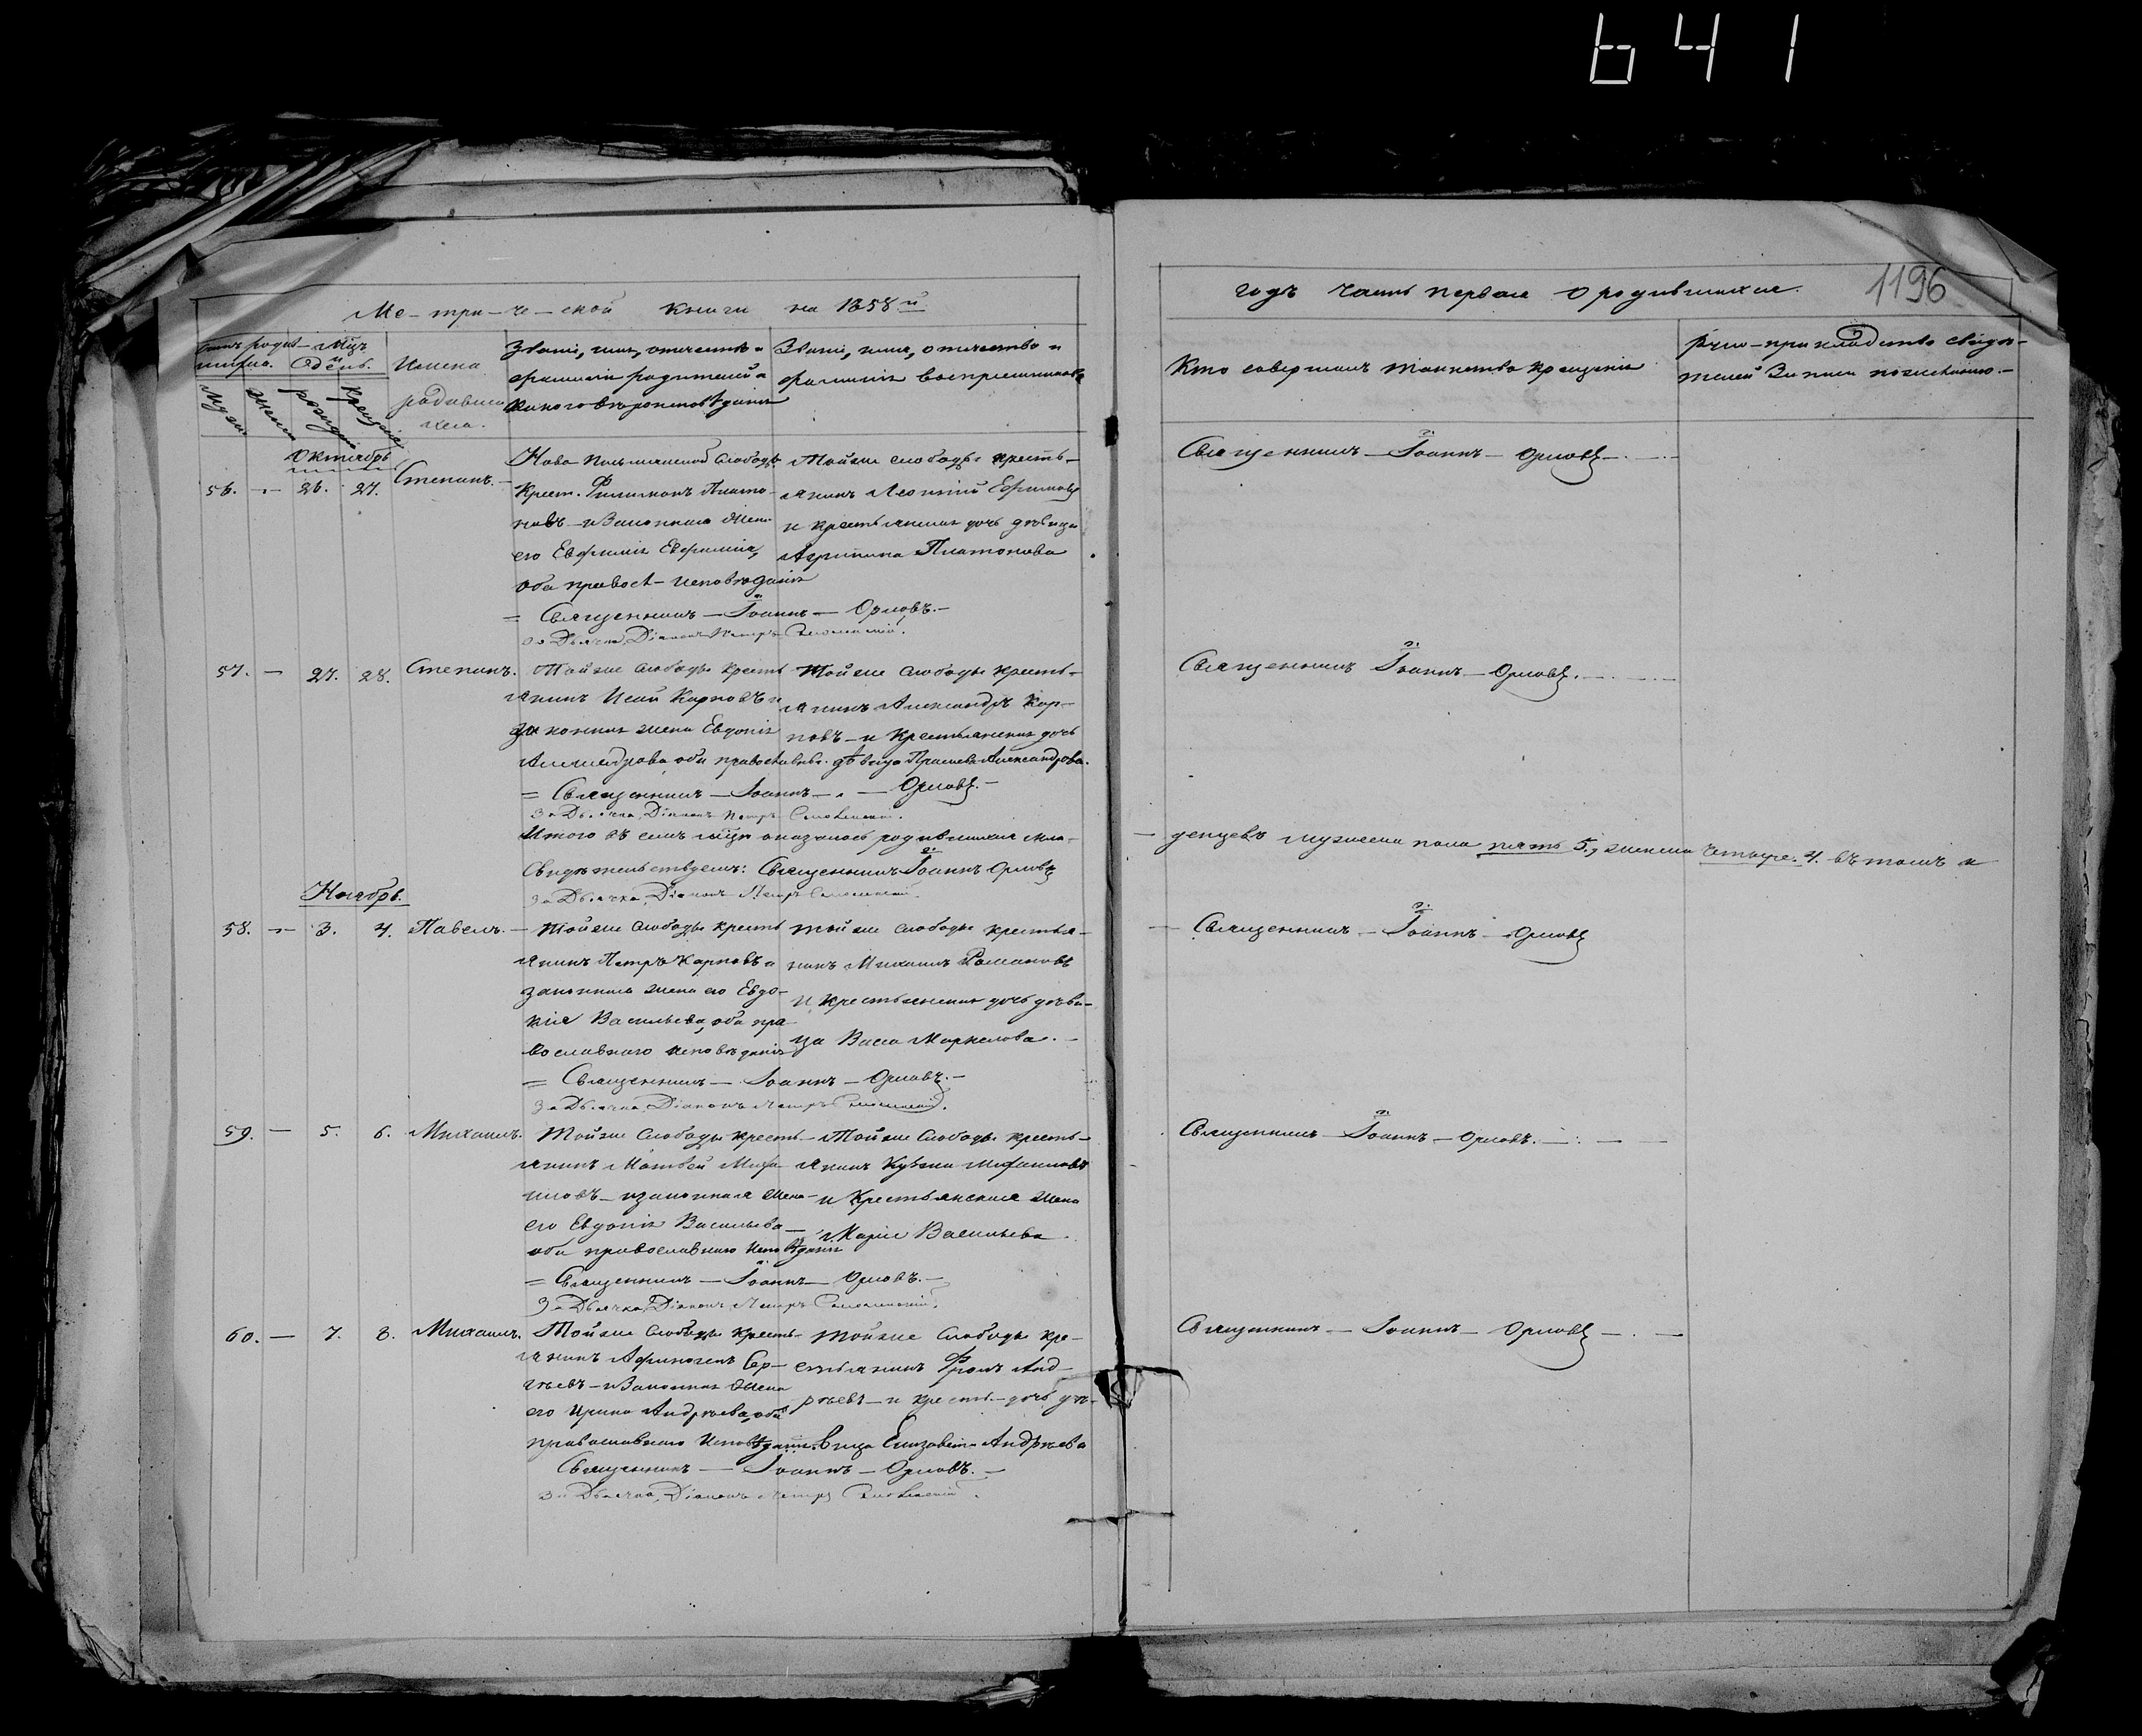 641
Ме-три-че-ской книги на 1858й
годъ часть первая о родившихся.
1196
Мцъ
и день.
Имена
родивши
хся.
Званіе, имя, отчество и
фамилія родителей и
какого вѣроисповѣданія
Званіе, имя, отчество и
фамилія воспріемниковъ
Кто совершалъ таинство крещенія
Руко-прикладство свидѣ-
телей записи по желанію.-
Мужск
Женск
рожденія
крещенія
Октябрь
56. - 26. 27.
Степанъ.
слободы
Крест. Филимонъ Плато-
новъ - и законная жена
его Евфимія Ефимова,
оба правосл- исповѣданія
= Священникъ - Іоаннъ - Орловъ.-
За Дьячка, Діаконъ Петръ
Тойже слободы кресть-
янинъ Леонтій Ефимовъ
и крестьянская дочь дѣвица
Агрипина Платонова
Священникъ - Іоаннъ - Орловъ -.-
57. - 27. 28. Степанъ.
Тойже слободы кресть
янинъ Исай Карповъ и
законная жена Евдокія
Александрова, оба православ.
= Священникъ - Іоаннъ - Орловъ.-
За Дьячка, Діаконъ Петръ
Тойже слободы кресть-
янинъ Александръ Кар-
повъ - и крестьянская дочь
дѣвица Александрова.
Священникъ Іоаннъ - Орловъ.-.-
Итого въ семъ мцѣ оказалось родившихся мла-
- денцевъ мужеска пола пять 5., женска четыре. 4. въ томъ и
Свидѣтельствуемъ: Священникъ Іоаннъ Орловъ
За Дьячка, Діаконъ Петръ
Ноябрь.
58. - 3. 4. Павелъ.-
Тойже слободы кресть
янинъ Петръ Карповъ и
законная жена его Евдо-
кія Васильева, оба пра
вославнаго исповѣданія
= Священникъ - Іоаннъ - Орловъ.-
За Дьячка, Діаконъ Петръ
тойже слободы крестья-
нинъ Михаилъ Романовъ
и крестьянская дочь дѣви-
ца Васса Маркелова.-
- Священникъ - Іоаннъ - Орловъ
59. - 5. 6. Михаилъ.
Тойже слободы кресть-
янинъ Матвей Миха-
иловъ - и законная жена
его Евдокія Васильева -
оба православнаго исповѣданія
= Священникъ - Іоаннъ - Орловъ.-
За Дьячка, Діаконъ Петръ
Тойже слободы кресть-
янинъ Кузма Михаиловъ
и Крестьянская жена
Марія Васильева.
Священникъ - Іоаннъ - Орловъ.-
60. - 7. 8. Михаилъ.
Тойже слободы кресть-
янинъ Афиногенъ Сер-
гѣевъ - и законная жена
его Ирина Андрѣева, оба
православнаго исповѣданія.
Священникъ - Іоаннъ - Орловъ.-
За Дьячка, Діаконъ Петръ
Тойже слободы кре-
стьянинъ Фролъ Анд-
рѣевъ - и крест.- дочь дѣ-
вица Елизавета Андрѣева
Священникъ - Іоаннъ - Орловъ -.-